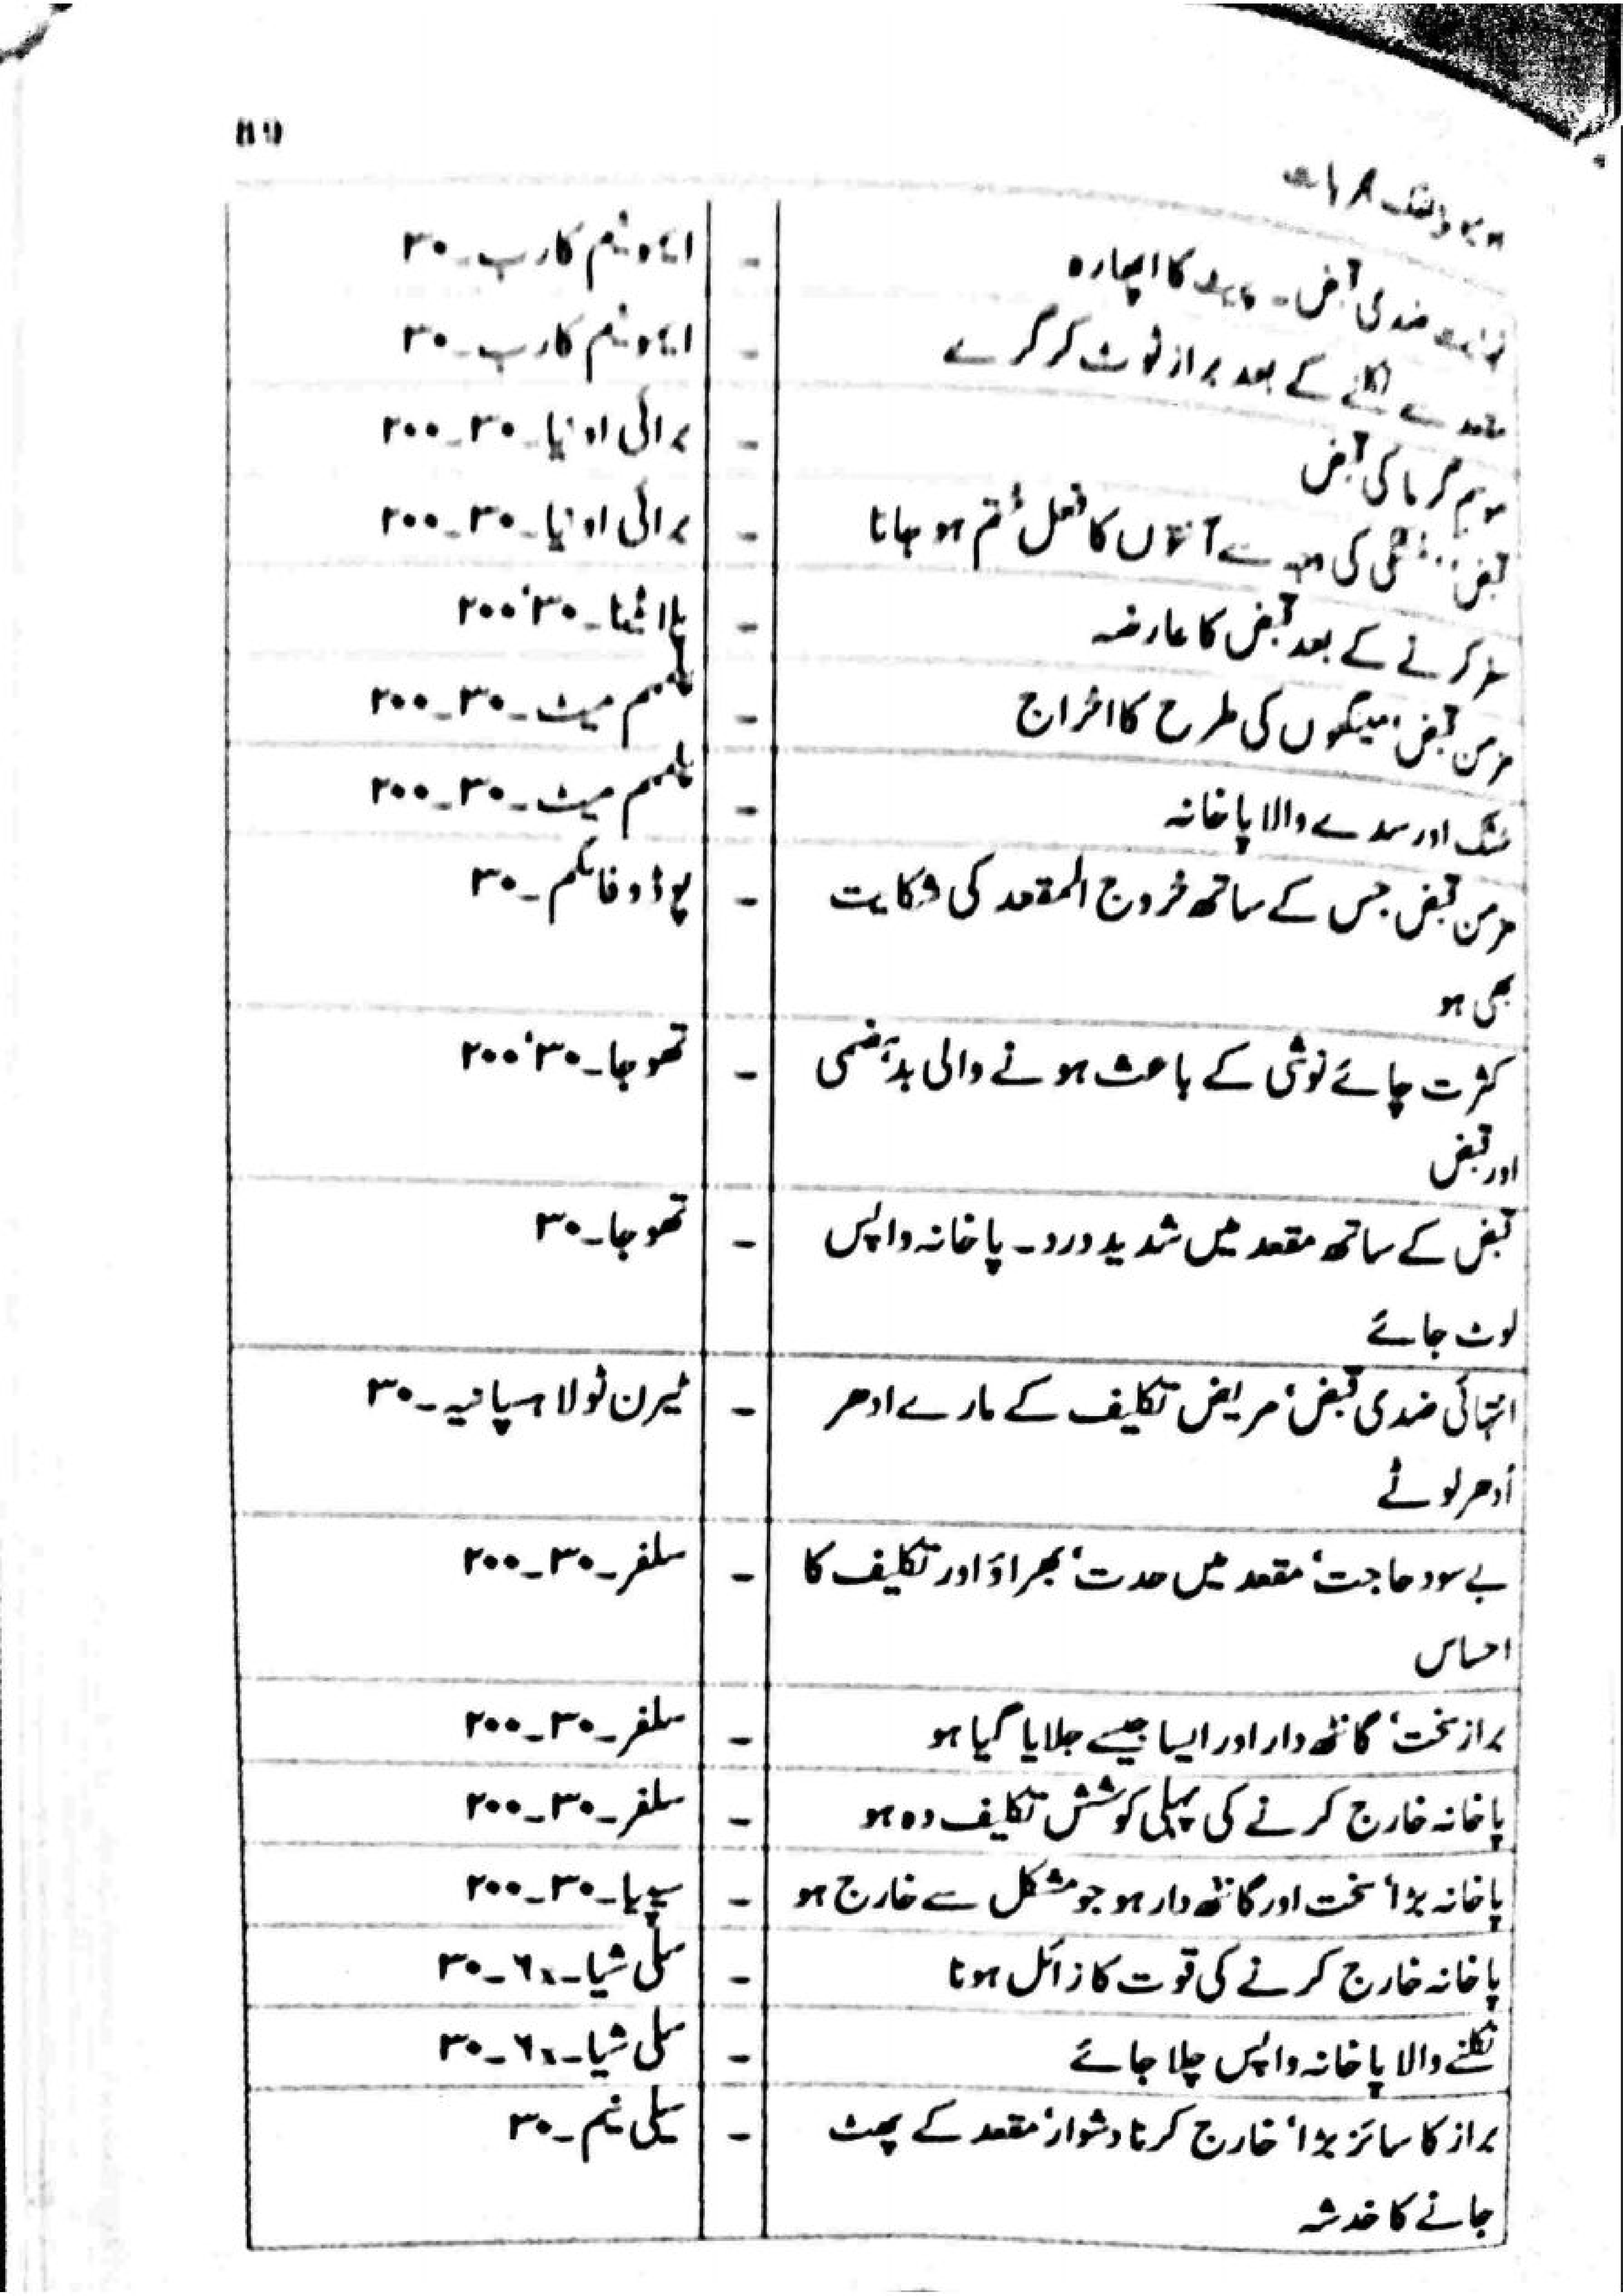 89
ہومیوپیتھک مجربات
نہایت ضدی قبض۔ پیٹ کا اپھارہ - ایمونیم کارب۔۳۰
مقعد سے نکلنے کے بعد براز ٹوٹ کر گرے - ایمونیم کارب۔۳۰
موسم گرما کی قبض - برائی اونیا۔۳۰۔۲۰۰
قبض، خشکی کی وجہ سے آنتوں کا فعل ختم ہو جانا - برائی اونیا۔۳۰۔۲۰۰
سفر کرنے کے بعد قبض کا عارضہ - پلاٹینا۔۳۰٬۲۰۰
مزمن قبض، مینگنوں کی طرح کا اخراج - پلمبم میٹ۔۳۰۔۲۰۰
خشک اور سدے والا پاخانہ - پلمبم میٹ۔۳۰۔۲۰۰
مزمن قبض جس کے ساتھ خروج المقعد کی شکایت - پوڈوفائلم۔۳۰
بھی ہو
کثرت چائے نوشی کے باعث ہونے والی بدہضمی - تھوجا۔۳۰٬۲۰۰
اور قبض
قبض کے ساتھ مقعد میں شدید درد۔ پاخانہ واپس - تھوجا۔۳۰
لوٹ جائے
انتہائی ضدی قبض، مریض تکلیف کے مارے ادھر - ٹیرن ٹولا ہسپانیہ۔۳۰
اُدھر لوٹے
بے سود حاجت، مقعد میں حدت، بھراؤ اور تکلیف کا - سلفر۔۳۰۔۲۰۰
احساس
براز سخت، گانٹھ دار اور ایسا جیسے جلایا گیا ہو - سلفر۔۳۰۔۲۰۰
پاخانہ خارج کرنے کی پہلی کوشش تکلیف دہ ہو - سلفر۔۳۰۔۲۰۰
پاخانہ بڑا، سخت اور گانٹھ دار ہو جو مشکل سے خارج ہو - سیپیا۔۳۰۔۲۰۰
پاخانہ خارج کرنے کی قوت کا زائل ہونا - سلی شیا۔۶x۔۳۰
نکلنے والا پاخانہ واپس چلا جائے - سلی شیا۔۶x۔۳۰
براز کا سائز بڑا، خارج کرنا دشوار، مقعد کے پھٹ - سیلی نیم۔۳۰
جانے کا خدشہ